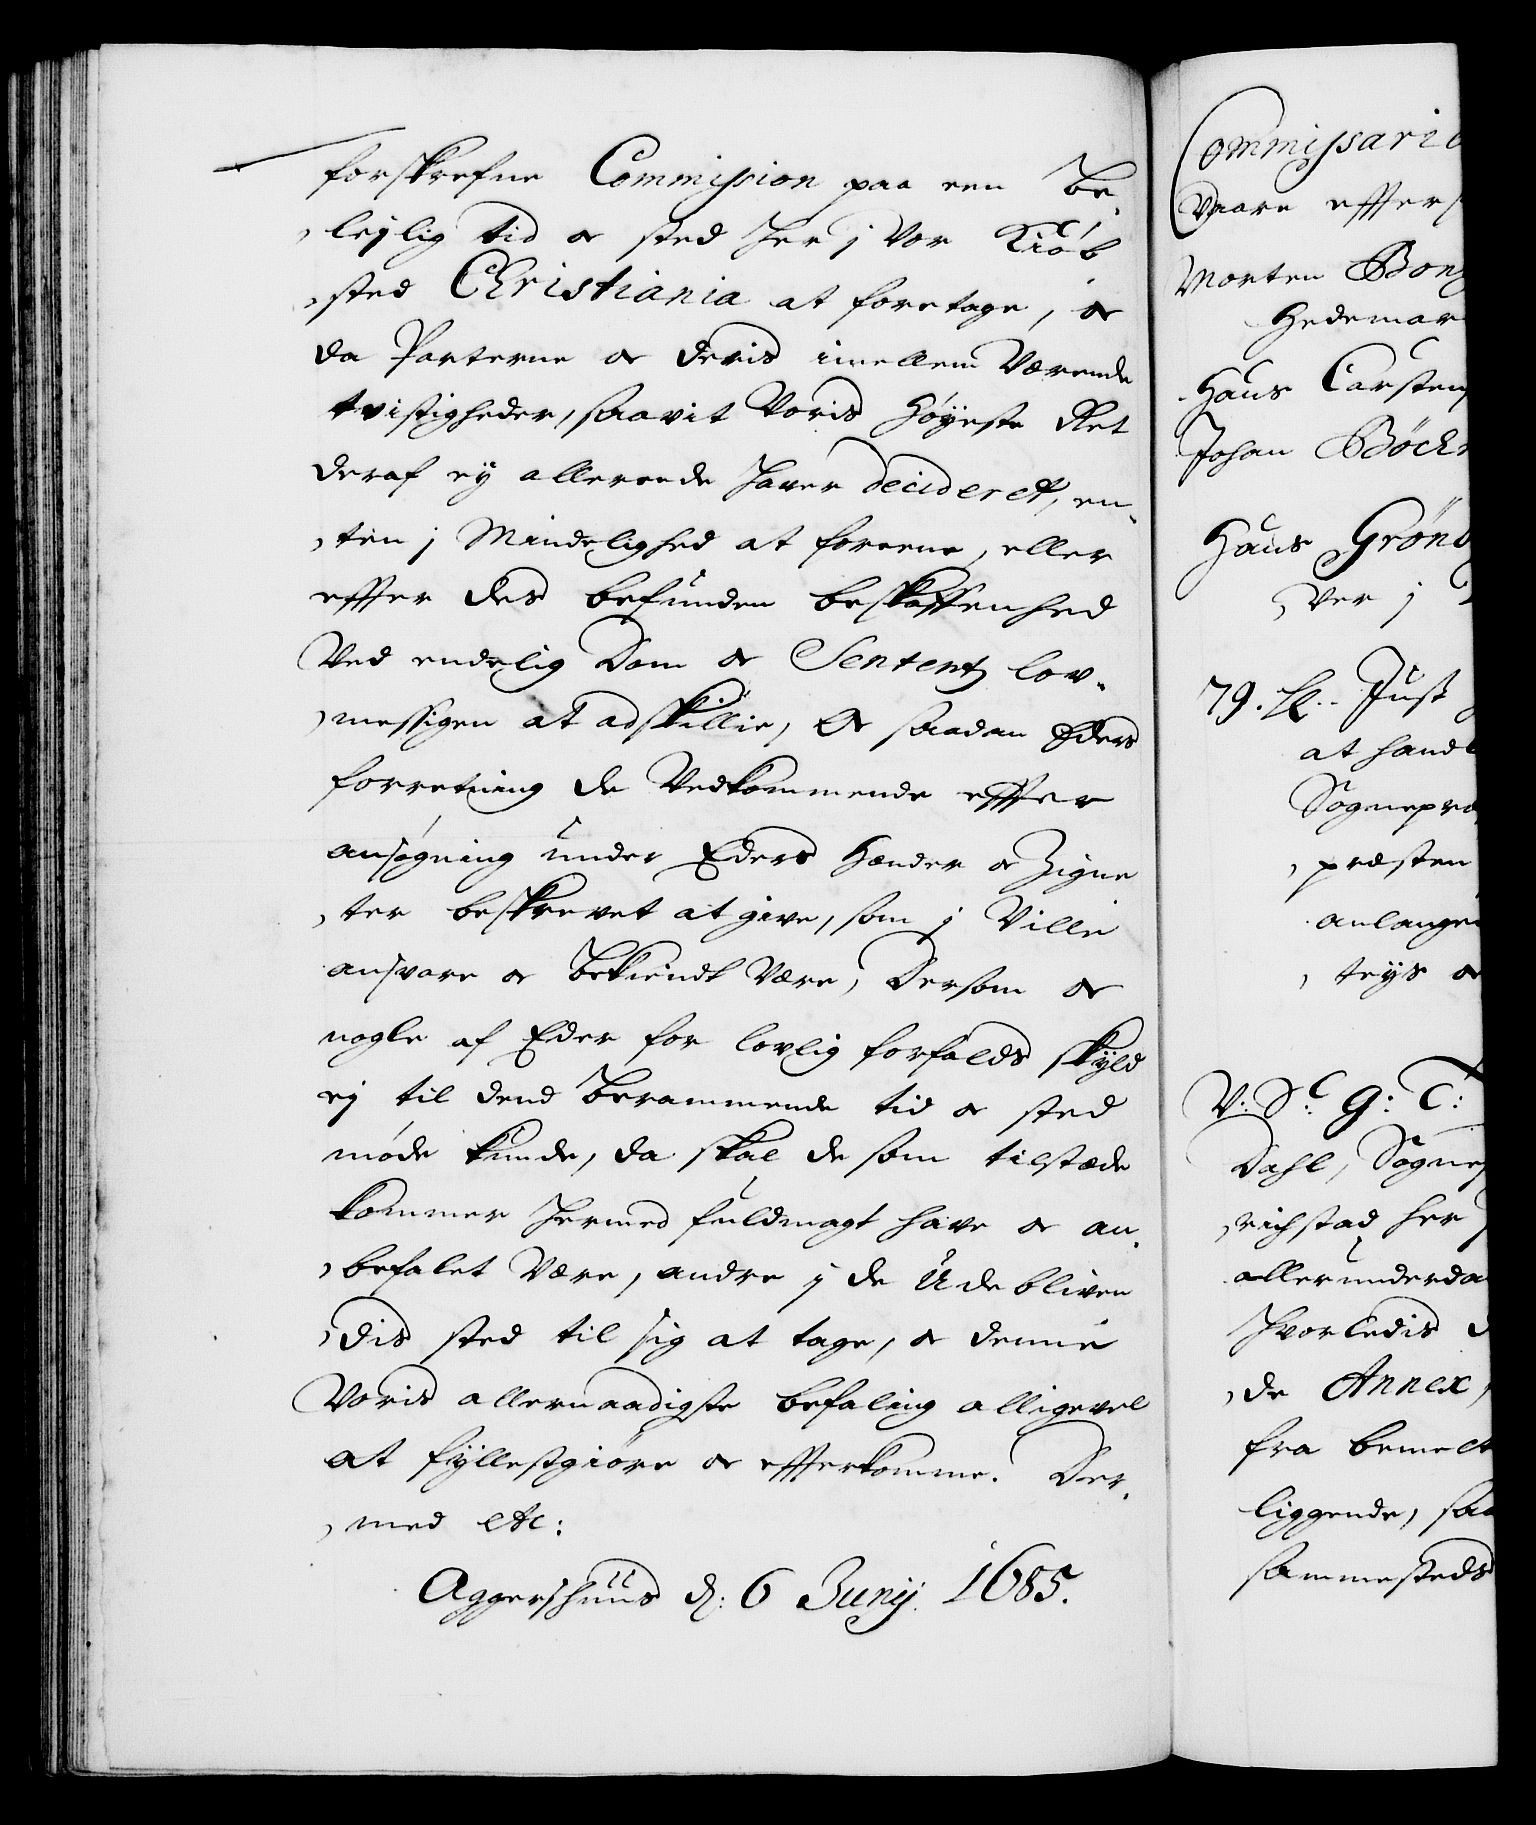 forskrefne Commission paa een be-
lejlig tid og sted her j Vor Kiøb
sted Christiania at foretage, og
da Parterne og deris imellem Værende
tvistigheder, saavit Voris Høyeste Ret
deraf ey allereede haver decideret, en-
ten j Mindelighed at foreene, eller
effter des befunden beskaffenhed
Ved endelig Dom og Sententz lov-
messigen at adskillie, Og saadan Eders
forretning de Vedkommende effter
ansøgning under Eders Hænder og Zigne
ter beskrevet at give, som j Ville
ansvare og bekiendt Være, Dersom og
nogle af Eder for lovlig forfalds skyld
ej til dend berammende tid og sted
møde kunde, da skal de som tilstæde
kommer hermed fuldmagt have og an-
befalet Være, andre j de Udebliven
dis sted til sig at tage, og denne
Voris allernaadigste befaling alligevel
at fyllestgiøre og effterkomme. Der-
med etc:
Aggershuus d: 6 Junij. 1685.
Commissarie
Vaare effters
Morten Bong
Hedemar
Hans Carstens
Johan Böck
Hans Grönb
ver j
79. Just
at handl
Sognepræ
præsten
anlange
teys og
V: S: G: T:
Dahl, Sognep
richstad her
allerunderda
hvorledis d
de Annex,
fra bemelt
liggende, saa
sammesteds